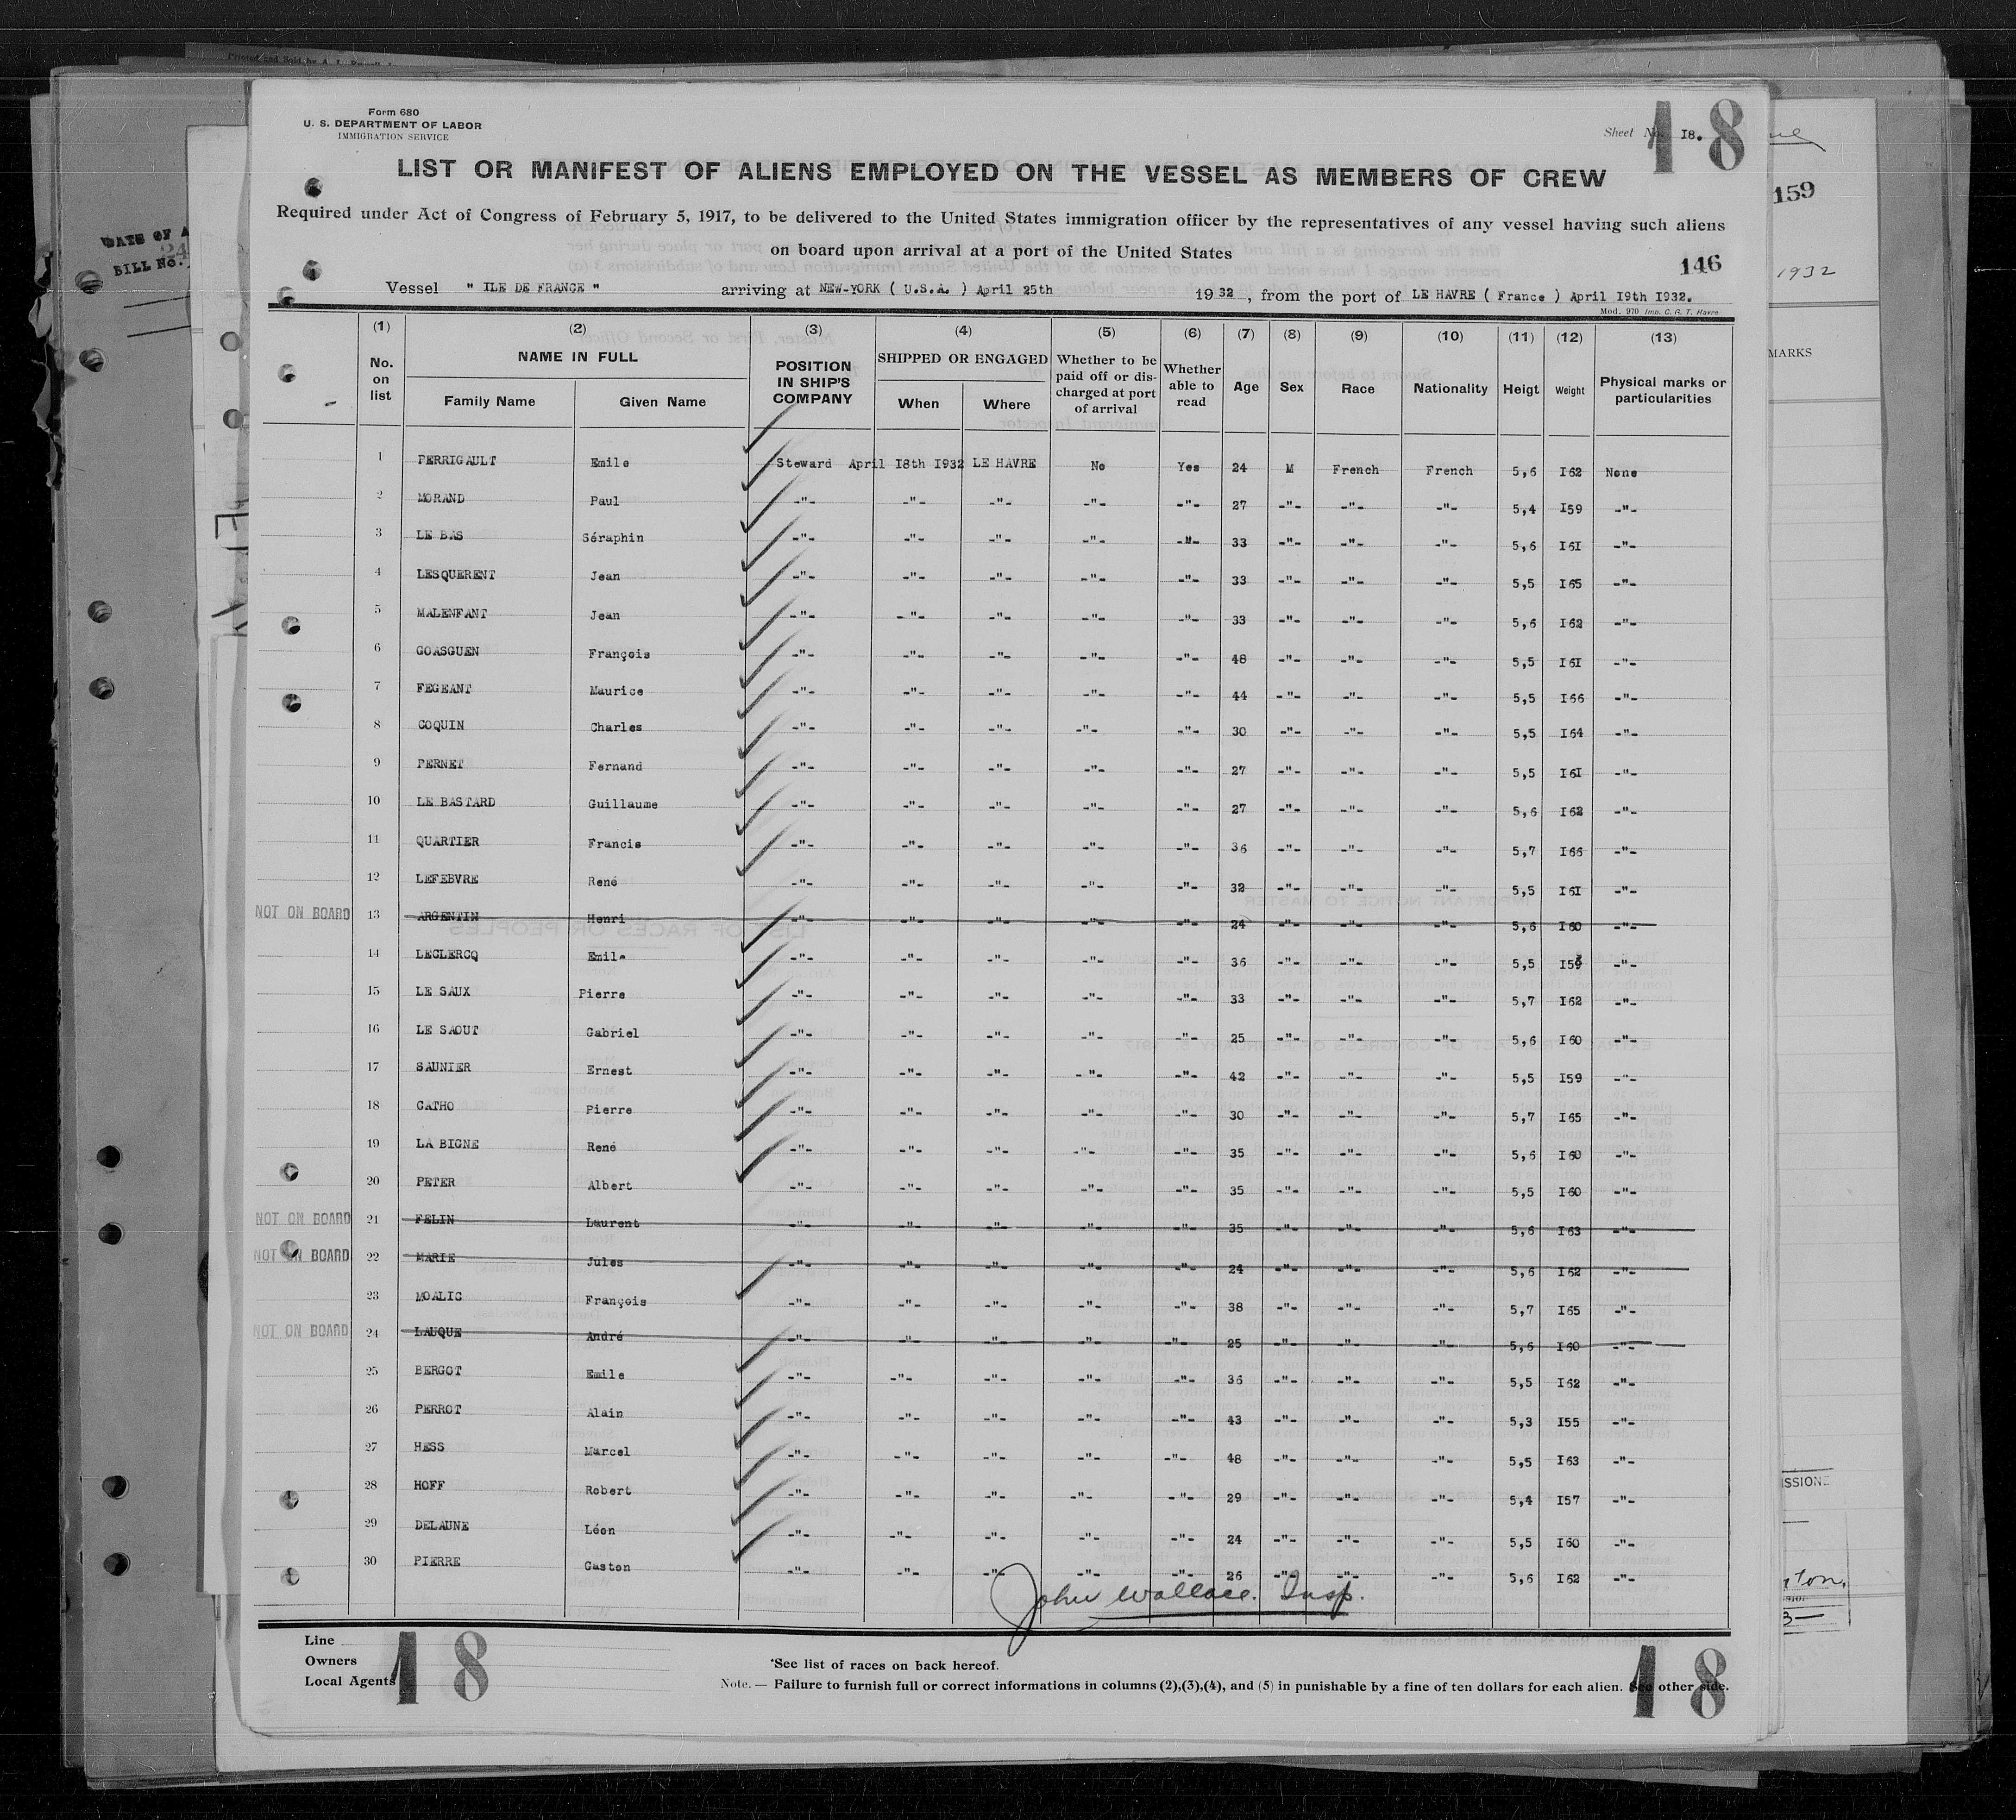 Form 680
U. S. DEPARTMENT OF LABOR
IMMIGRATION SERVICE
Sheet No. I8.
18
LIST OR MANIFEST OF ALIENS EMPLOYED ON THE VESSEL AS MEMBERS OF CREW
Required under Act of Congress of February 5, 1917, to be delivered to the United States immigration officer by the representatives of any vessel having such aliens
on board upon arrival at a port of the United States
146
159
1932
DATE OF
BILL No.
Vessel " ILE DE FRANCE " arriving at NEW-YORK ( U.S.A. ) April 25th 1932, from the port of LE HAVRE ( France ) April I9th I932.
Mod. 970 Imp. C. G. T. Havre
(1) (2) (3) (4) (5) (6) (7) (8) (9) (10) (11) (12) (13)
No. on list NAME IN FULL Family Name Given Name POSITION IN SHIP'S COMPANY SHIPPED OR ENGAGED When Where Whether to be paid off or discharged at port of arrival Whether able to read Age Sex Race Nationality Heigt Weight Physical marks or particularities
MARKS
1 PERRIGAULT Emile Steward April I8th I932 LE HAVRE No Yes 24 M French French 5,6 I62 None
2 MORAND Paul -"- -"- -"- -"- -"- 27 -"- -"- -"- 5,4 I59 -"-
3 LE BAS Séraphin -"- -"- -"- -"- -"- 33 -"- -"- -"- 5,6 I6I -"-
4 LESQUERENT Jean -"- -"- -"- -"- -"- 33 -"- -"- -"- 5,5 I65 -"-
5 MALENFANT Jean -"- -"- -"- -"- -"- 33 -"- -"- -"- 5,6 I62 -"-
6 GOASGUEN François -"- -"- -"- -"- -"- 48 -"- -"- -"- 5,5 I6I -"-
7 FEGEANT Maurice -"- -"- -"- -"- -"- 44 -"- -"- -"- 5,5 I66 -"-
8 COQUIN Charles -"- -"- -"- -"- -"- 30 -"- -"- -"- 5,5 I64 -"-
9 PERNET Fernand -"- -"- -"- -"- -"- 27 -"- -"- -"- 5,5 I6I -"-
10 LE BASTARD Guillaume -"- -"- -"- -"- -"- 27 -"- -"- -"- 5,6 I62 -"-
11 QUARTIER Francis -"- -"- -"- -"- -"- 36 -"- -"- -"- 5,7 I66 -"-
12 LEFEBVRE René -"- -"- -"- -"- -"- 32 -"- -"- -"- 5,5 I6I -"-
NOT ON BOARD 13 ARGENTIN Henri -"- -"- -"- -"- -"- 24 -"- -"- -"- 5,6 I60 -"-
14 LECLERCQ Emile -"- -"- -"- -"- -"- 36 -"- -"- -"- 5,5 -"-
15 LE SAUX Pierre -"- -"- -"- -"- -"- 33 -"- -"- -"- 5,7 I62 -"-
16 LE SAOUT Gabriel -"- -"- -"- -"- -"- 25 -"- -"- -"- 5,6 I60 -"-
17 SAUNIER Ernest -"- -"- -"- -"- -"- 42 -"- -"- -"- 5,5 I59 -"-
18 CATHO Pierre -"- -"- -"- -"- -"- 30 -"- -"- -"- 5,7 I65 -"-
19 LA BIGNE René -"- -"- -"- -"- -"- 35 -"- -"- -"- 5,6 I60 -"-
20 PETER Albert -"- -"- -"- -"- -"- 35 -"- -"- -"- 5,5 I60 -"-
NOT ON BOARD 21 FELIN Laurent -"- -"- -"- -"- -"- 35 -"- -"- -"- 5,6 I63 -"-
NOT ON BOARD 22 MARIE Jules -"- -"- -"- -"- -"- 24 -"- -"- -"- 5,6 I62 -"-
23 MOALIC François -"- -"- -"- -"- -"- 38 -"- -"- -"- 5,7 I65 -"-
NOT ON BOARD 24 LAUQUE André -"- -"- -"- -"- -"- 25 -"- -"- -"- 5,6 I60 -"-
25 BERGOT Emile -"- -"- -"- -"- -"- 36 -"- -"- -"- 5,5 I62 -"-
26 PERROT Alain -"- -"- -"- -"- -"- 43 -"- -"- -"- 5,3 I55 -"-
27 HESS Marcel -"- -"- -"- -"- -"- 48 -"- -"- -"- 5,5 I63 -"-
28 HOFF Robert -"- -"- -"- -"- -"- 29 -"- -"- -"- 5,4 I57 -"-
29 DELAUNE Léon -"- -"- -"- -"- -"- 24 -"- -"- -"- 5,5 I60 -"-
30 PIERRE Gaston -"- -"- -"- -"- -"- 26 -"- -"- -"- 5,6 I62 -"-
John Wallace. Insp.
Line
Owners
Local Agents
18
*See list of races on back hereof.
Note. — Failure to furnish full or correct informations in columns (2),(3),(4), and (5) in punishable by a fine of ten dollars for each alien. See other side.
18